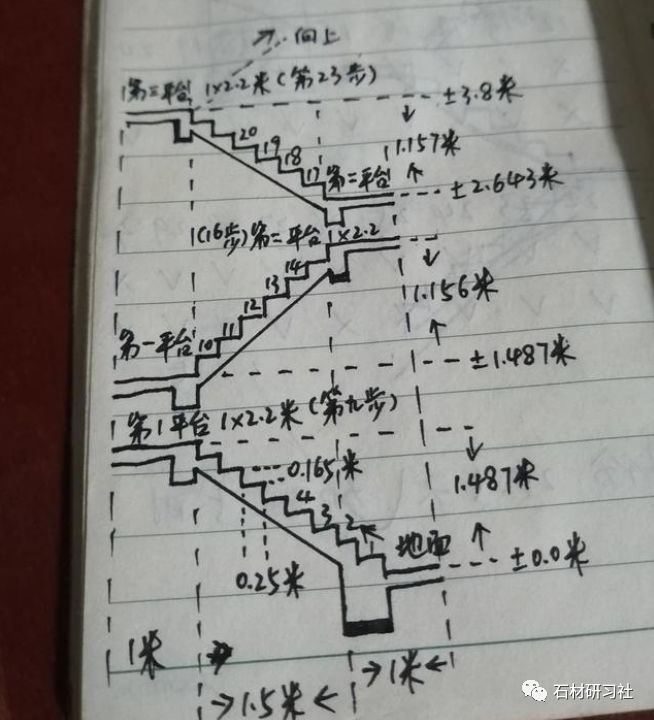 向上
第三平台 1×2.2米(第23步)
±3.8米
20
19
18
17
1.157米
第二平台
±2.643米
(16步)第二平台 1×2.2
14
13
12
11
10
1.156米
第一平台
±1.487米
第1平台 1×2.2米(第九步)
0.165米
1.487米
4
3
2
地面
±0.0米
0.25米
1米
1米
1.5米
石材研习社